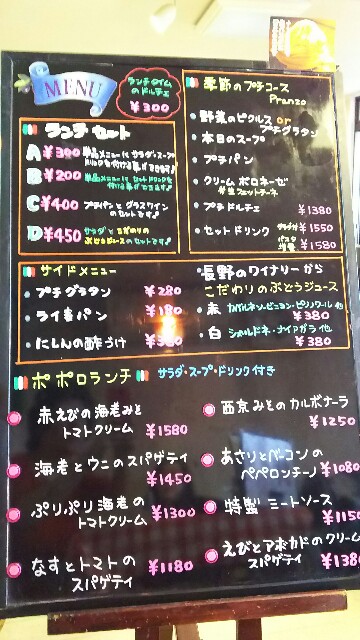 MENU
ランチタイム
のドルチェ
¥300
ランチセット
A ¥300 単品メニューにサラダ・スープ
B ¥200 単品メニューにセットドリンクを
C ¥400 プチパンとグラスワイン
のセットです♪
D ¥450 サラダと
ぶどうジュースのセットです♪
季節のプチコース
Pranzo
・野菜のピクルス or
プチグラタン
・本日のスープ
・プチパン
・クリームボロネーゼ
・プチドルチェ ¥1380
・セットドリンク ¥1550
パスタ
¥1580
サイドメニュー
・プチグラタン ¥280
・ライ麦パン ¥180
・にしんの酢づけ
・長野のワイナリーから
こだわりのぶどうジュース
・赤 カベルネソービニヨン・ピノノワール 他
¥380
・白 シャルドネ・ナイアガラ 他
¥380
ポポロランチ サラダ・スープ・ドリンク付き
赤えびの海老みと
トマトクリーム ¥1580
海老とウニのスパゲティ
¥1450
ぷりぷり海老の
トマトクリーム ¥1300
なすとトマトの
スパゲティ ¥1180
西京みそのカルボナーラ
¥1250
あさりとベーコンの
ペペロンチーノ ¥1080
特製 ミートソース
¥1150
えびとアボカドのクリーム
スパゲティ ¥138